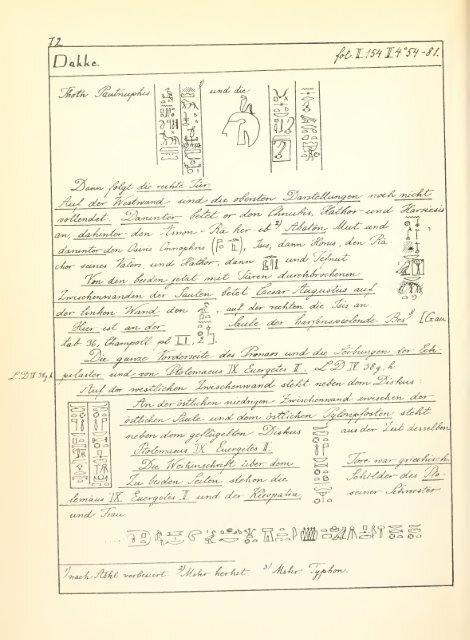 72
Dakke. fol. II 154 II 4° 54-81.
Thoth Pautnuphis und die
Dann folgt die rechte Tür.
Auf der Westwand sind die obersten Darstellungen noch nicht
vollendet. Darunter betet er den Chnubis, Hathor und Harsiesis
an, dahinter den Amon-Ra her ist 2) Abaton Mut und
darunter den Osiris Onnophris, Isis, dann Horus, den Rä
cher seines Vaters und Hathor, dann und Tefnut
Von den beiden jetzt mit Türen durchbrochenen
Zwischenwänden der Säulen betet Caesar Augustus auf
der linken Wand den , auf der rechten die Isis an
Hier ist an der Säule der harfenspielende Bes 3) [Gau
tab 36, Champoll pl
Die ganze Vorderseite des Pronaos und die Leibungen der Eck-
L D IV 38 g, h pilaster sind von Ptolemaeus IX Euergetes II. L D IV 38 g. h
Auf der westlichen Zwischenwand steht neben dem Diskus:
An der östlichen niedrigen Zwischenwand zwischen der
östlichen Säule und dem östlichen Pylonpfosten steht
neben dem geflügelten Diskus aus der Zeit desselben
Ptolemaeus IX Euergetes II.
Die Weihinschrift über dem Tore war griechisch
Zu beiden Seiten stehen die Schilder des Pto-
lemäus IX. Euergetes II und der Kleopatra, seiner Schwester
und Frau
1) nach Abkl verbessert. 2) Mskr herhet. 3) Mskr. Typhon.